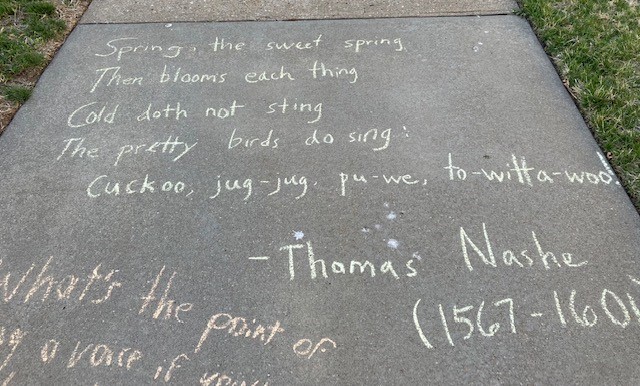 Spring, the sweet spring
Then blooms each thing
Cold doth not sting
The pretty birds do sing:
Cuckoo, jug-jug, pu-we, to-witta-woo!
- Thomas Nashe
(1567-1601)
What's the point of
a voice if